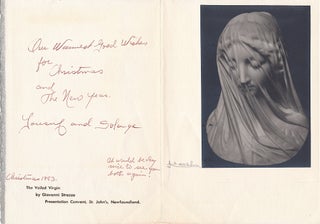 Our Warmest Good Wishes
for
Christmas
and
The New Year.
Yousuf and Solange
It would be very
nice to see you
both again!
Christmas 1953.
The Veiled Virgin
by Giovanni Strazza
Presentation Convent, St. John's, Newfoundland.